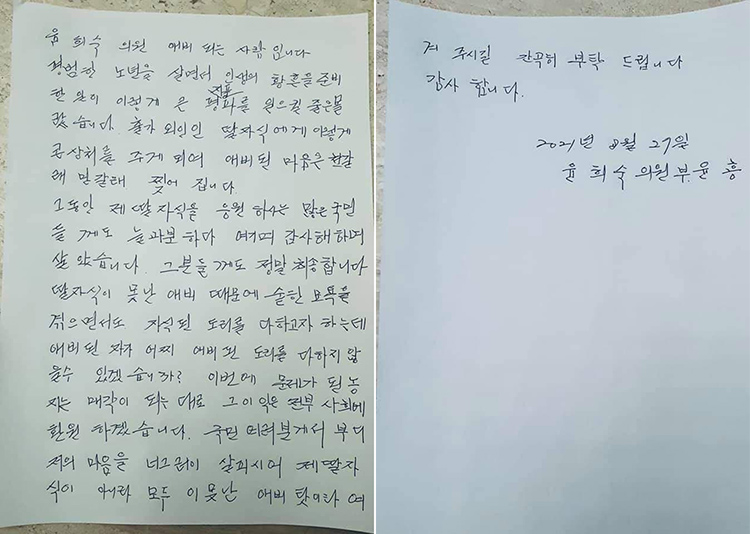 윤 희숙 의원 애비 되는 사람입니다
평범한 노년을 살면서 인생의 황혼을 준비
한 일이 이렇게 큰
지금
평파를 일으킬 줄은 몰
랐습니다. 출가 외인인 딸자식에게 이렇게
큰상처를 주게 되어 애비된 마음은 한갈
래 만갈래 찢어 집니다
그동안 제 딸자식을 응원 하시는 많은 국민
들께도 늘 과분하다 여기며 감사해하며
살았습니다. 그분들께도 정말 죄송합니다
딸자식이 못난 애비 때문에 숱한 모욕을
겪으면서도 자식된 도리를 다하고자 하는데
애비된 자가 어찌 애비된 도리를 다하지 않
을수 있겠습니까? 이번에 문제가 된 농
지는 매각이 되는대로 그 이익은 전부 사회에
환원 하겠습니다. 국민 여러분께서 부디
저의 마음을 너그러이 살피시어 제 딸자
식이 아니라 모두 이 못난 애비 탓이라 여
겨 주시길 간곡히 부탁 드립니다
감사 합니다.
2021년 8월 27일
윤 희숙 의원 부 윤 홍